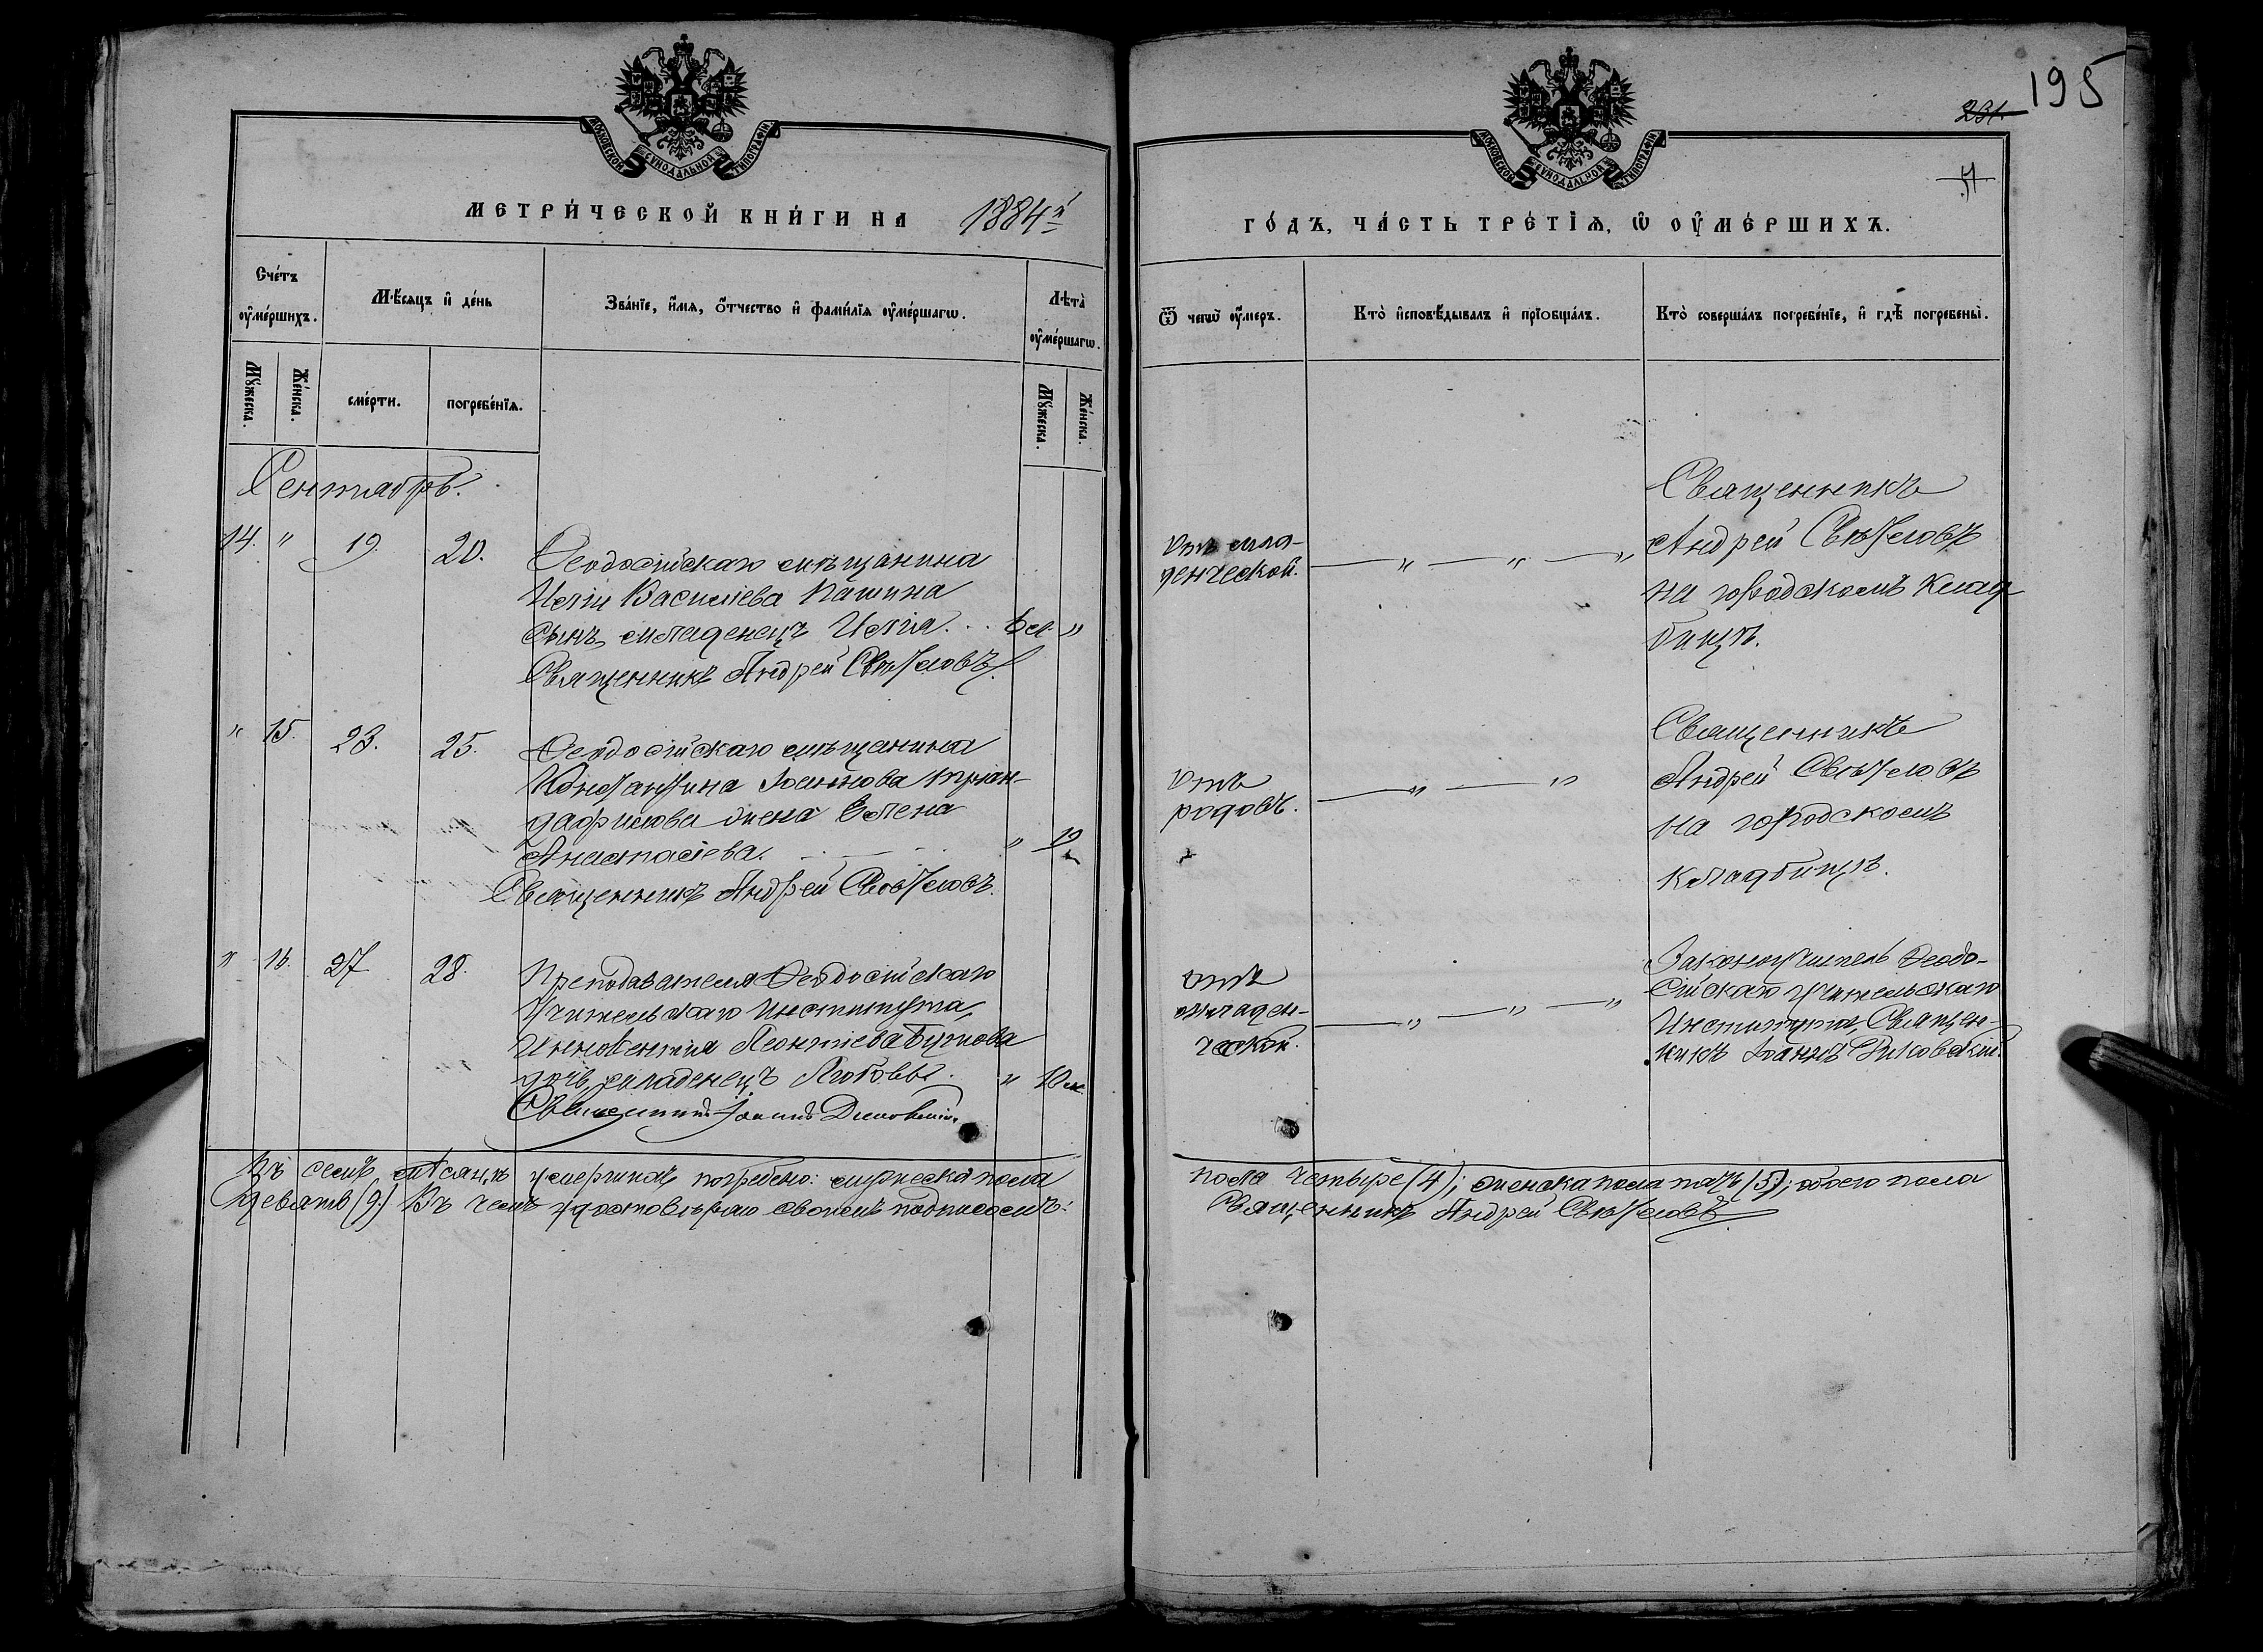 МОСКОВСКОЙ СУНОДАЛЬНОЙ ТИПОГРАФІИ
МЕТРИ́ЧЕСКОЙ КНИ́ГИ НА 1884й
Сче́тъ ᲂу҆ме́ршихъ.
Мѣ́сяцъ и҆ де́нь
Зва́нїе, и҆́мя, ѻ҆́тчество и҆ фами́лїя ᲂу҆ме́ршагѡ.
Лѣ́та ᲂу҆ме́ршагѡ.
Мꙋ́жеска.
Же́нска.
сме́рти.
погребе́нїя.
Мꙋ́жеска.
Же́нска.
Сентябрь.
14. " 19. 20.
Ѳеодосійскаго мѣщанина
Иліи Васильева Пашина
сынъ, младенецъ Илія. . . 6 м. "
Священникъ Андрей Свѣтловъ
" 15. 23. 25.
Ѳеодосійскаго мѣщанина
Константина Іоаннова Триан-
дафилова жена Елена
Анастасіева. " 19
Священникъ Андрей Свѣтловъ.
" 16. 27 28.
Преподавателя Ѳеодосійскаго
Учительскаго Института,
Иннокентія Леонтіева
дочь, младенецъ Любовь. " 10 м.
Священникъ Іоаннъ
Въ семъ мѣсяцѣ умершихъ погребено: мужеска пола
девять (9.) Въ чемъ удостовѣряю своимъ подписомъ:
195
231
МОСКОВСКОЙ СУНОДАЛЬНОЙ ТИПОГРАФІИ
ГО́ДЪ, ЧА́СТЬ ТРЕ́ТЇЯ, Ѡ҆ ОУ҆МЕ́РШИХЪ.
Ѿ чегѡ̀ ᲂу҆́меръ.
Кто̀ и҆сповѣ́дывалъ и҆ прїобща́лъ.
Кто̀ соверша́лъ погребе́нїе, и҆ гдѣ̀ погребены̀.
Отъ мла-
денческой.
Священникъ
Андрей Свѣтловъ
на городскомъ клад
бищѣ.
Отъ
родовъ.
Священникъ
Андрей Свѣтловъ
на городскомъ
кладбищѣ.
Отъ
младен-
ческой.
Законоучитель Ѳеодо-
сійскаго учительскаго
Института, Священ-
никъ Іоаннъ
пола четыре (4); женска пола пять (5); обоего пола
Священникъ Андрей Свѣтловъ